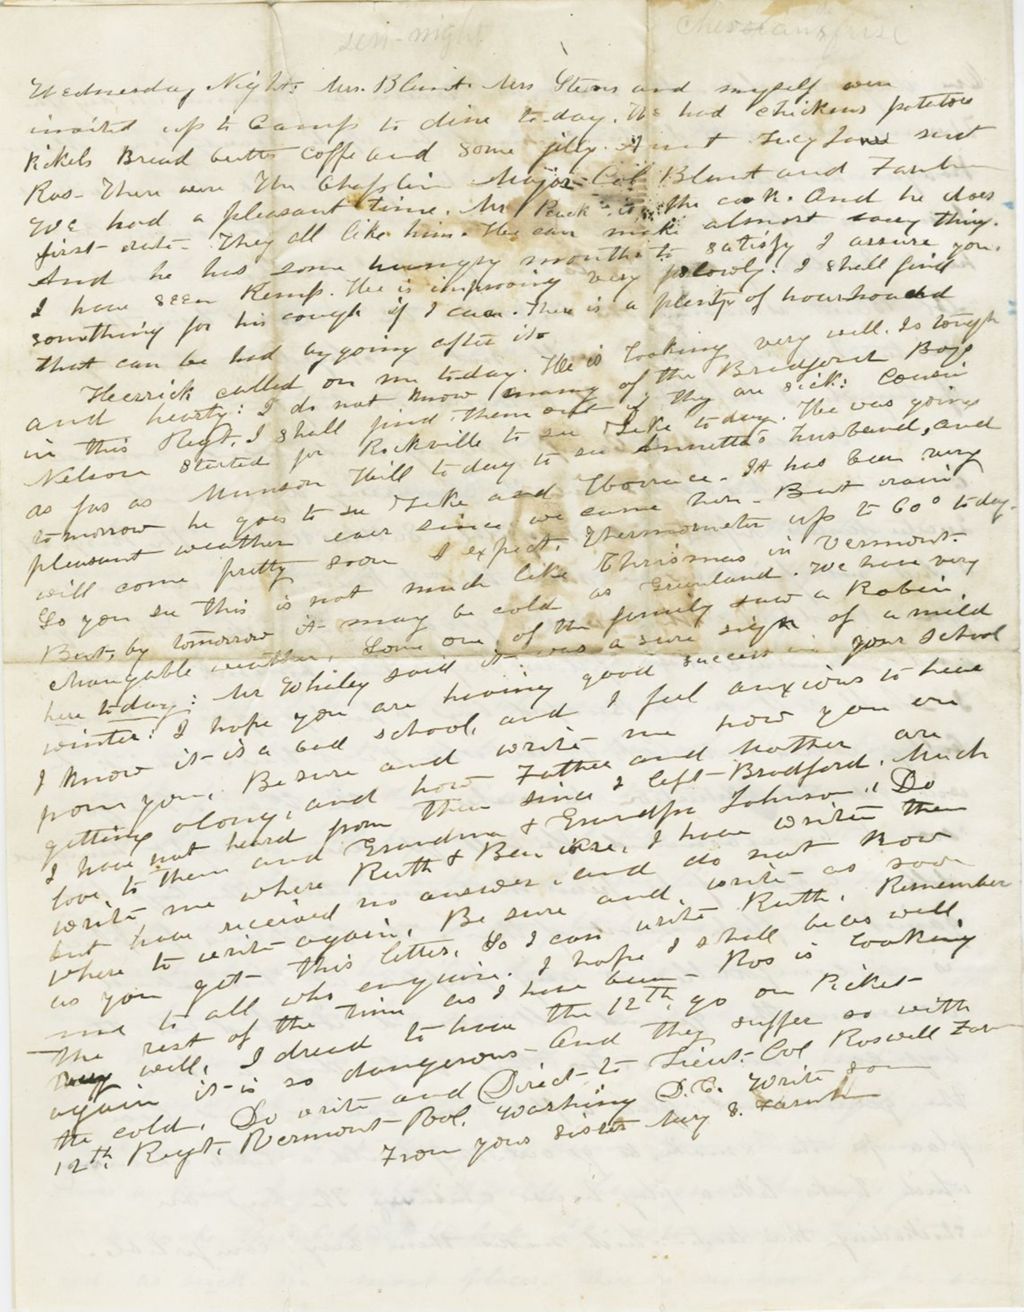 sen-night
Chevaux frise
Wednesday Night. Mrs. Blunt Mrs Stevens and myself were
invited up to Camp to dine to day. We had chickens potatoes
Pickels Bread butter coffe and some jelly. Aunt Lucy Jane sent
Ros. There were The Chaplin Major Col Blunt and Farnham
We had a pleasant time. Mr Buck is the cook. And he does
first rate. They all like him. He can make almost every thing.
And he has some hungry mouths to satisfy I assure you.
I have seen Kemp. He is improving very slowly. I shall find
something for his cough if I can. There is a plenty of hourhound
that can be had by going after it.
Herrick called on me to day. He is looking very well. Is tough
and hearty: I do not know many of the Bradford Boys
in this Regt. I shall find them out if they are sick: Cousin
Nelson started for Rockville to see Zeke to day. He was going
as far as Munson Hill to day to see Annetta's husband, and
tomorrow he goes to see Zeke and Horrace. It has been very
pleasant weather ever since we came here. But rain
will come pretty soon I expect. Thermometer up to 60° to day.
So you see this is not much like Chrismas in Vermont.
But, by tomorrow it may be cold as Greenland. We have very
changable weather. Some one of the family saw a Robin
here to day: Mr Whiley said it was a sure sign of a mild
winter: I hope you are having good success in your school
I know it is a bad school, and I feel anxious to hear
from you, Be sure and write me how you are
getting along, and how Father and Mother are
I have not heard from them since I left Bradford. Much
love to them and Grandma & Grandpa Johnson. Do
write me where Ruth & Ben are, I have write them
but have received no answer and do not know
where to write again. Be sure and write as soon
as you get this letter, So I can write Ruth. Remember
me to all who enquire. I hope I shall be as well,
the rest of the time as I have been Ros is looking
well, I dread to have the 12th go on Picket
again it is so dangerous And they suffer so with
the cold, Do write and Direct to Lieut. Col Roswell Farnham
12th Regt, Vermont Vol, Washing D.C. Write soon
From your sister Mary E. Farnham